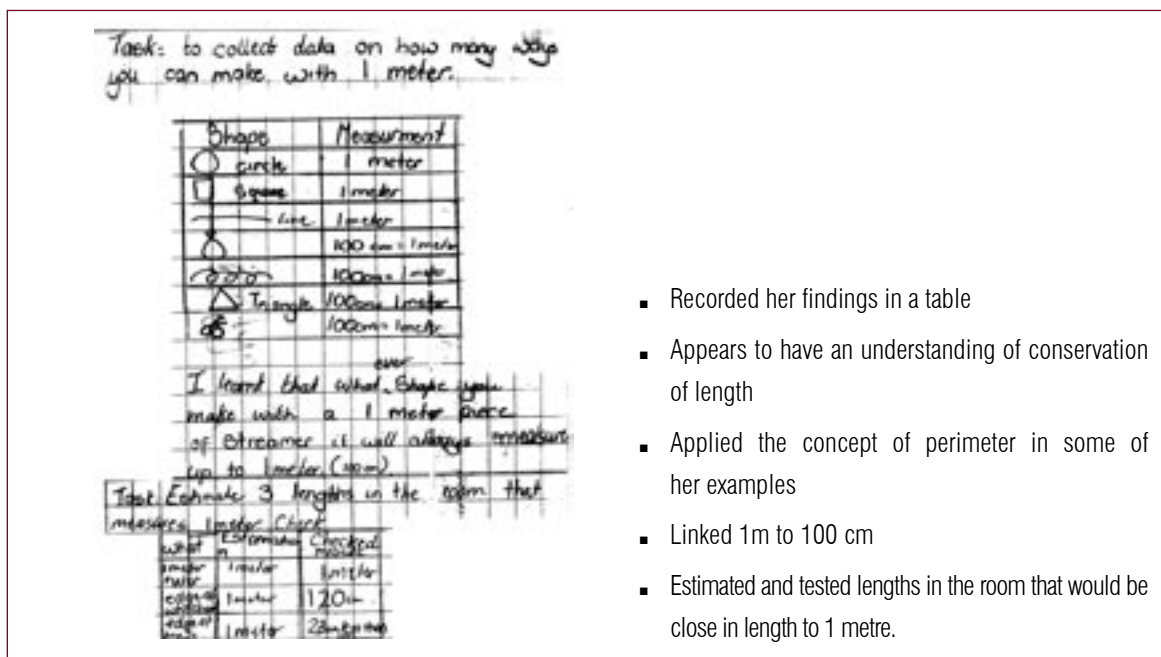 Task: to collect data on how many ways
you can make with 1 meter.
Shape Measurment
circle 1 meter
Square 1 meter
line 1 meter
100 cm = 1 meter
100cm = 1 meter
Triangle 100cm = 1 meter
100cm = 1 meter
ever
I learnt that what Shape you
make with a 1 meter piece
of Streamer it will always measure
up to 1 meter.
Task Estimate 3 lengths in the room that
measures 1 meter Check
what Estimation Checked
1 meter ruler 1 meter 1 meter
edge of 1 meter 120cm
edge of 1 meter
▪ Recorded her findings in a table
▪ Appears to have an understanding of conservation
of length
▪ Applied the concept of perimeter in some of
her examples
▪ Linked 1m to 100 cm
▪ Estimated and tested lengths in the room that would be
close in length to 1 metre.